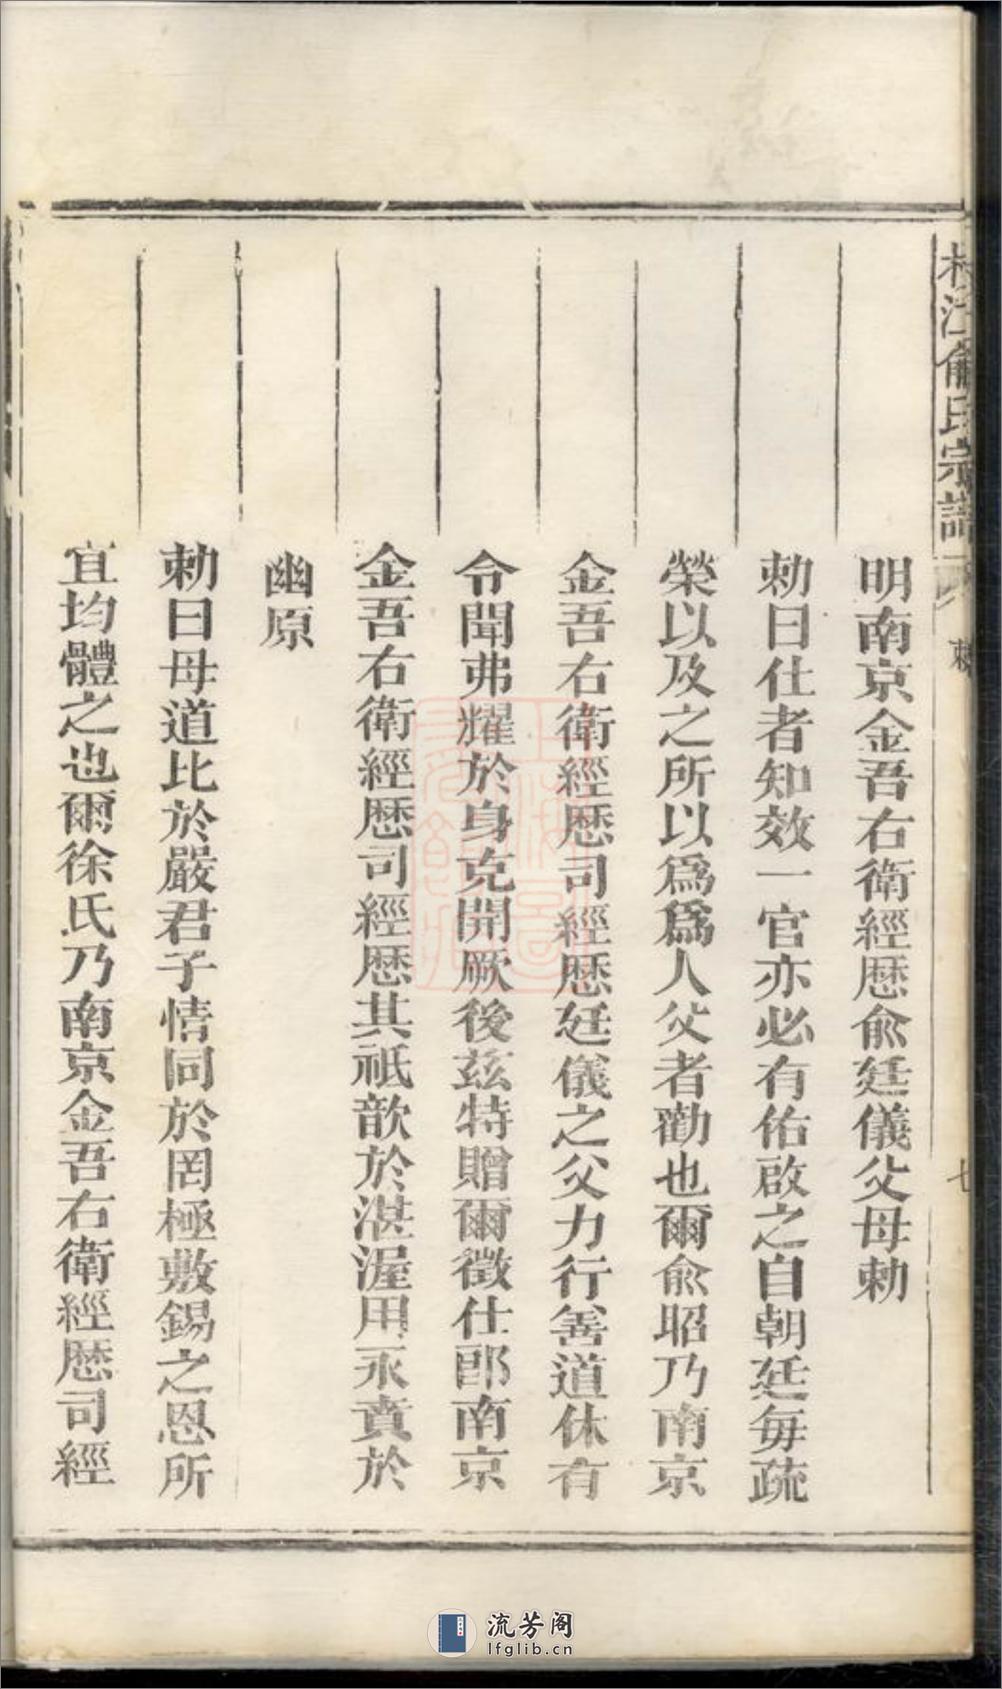 明南京金吾右衛經歷俞廷儀父母勅
勅曰仕者知效一官亦必有佑啟之自朝廷每疏
榮以及之所以爲爲人父者勸也爾俞昭乃南京
金吾右衛經歷司經歷廷儀之父力行善道休有
令聞弗耀於身克開厥後茲特贈爾徵仕郎南京
金吾右衛經歷司經歷其祇歆於湛渥用永賁於
幽原
勅曰母道比於嚴君子情同於罔極敷錫之恩所
宜均體之也爾徐氏乃南京金吾右衛經歷司經
江俞氏宗譜
勅
七
流芳阁
lfglib.cn